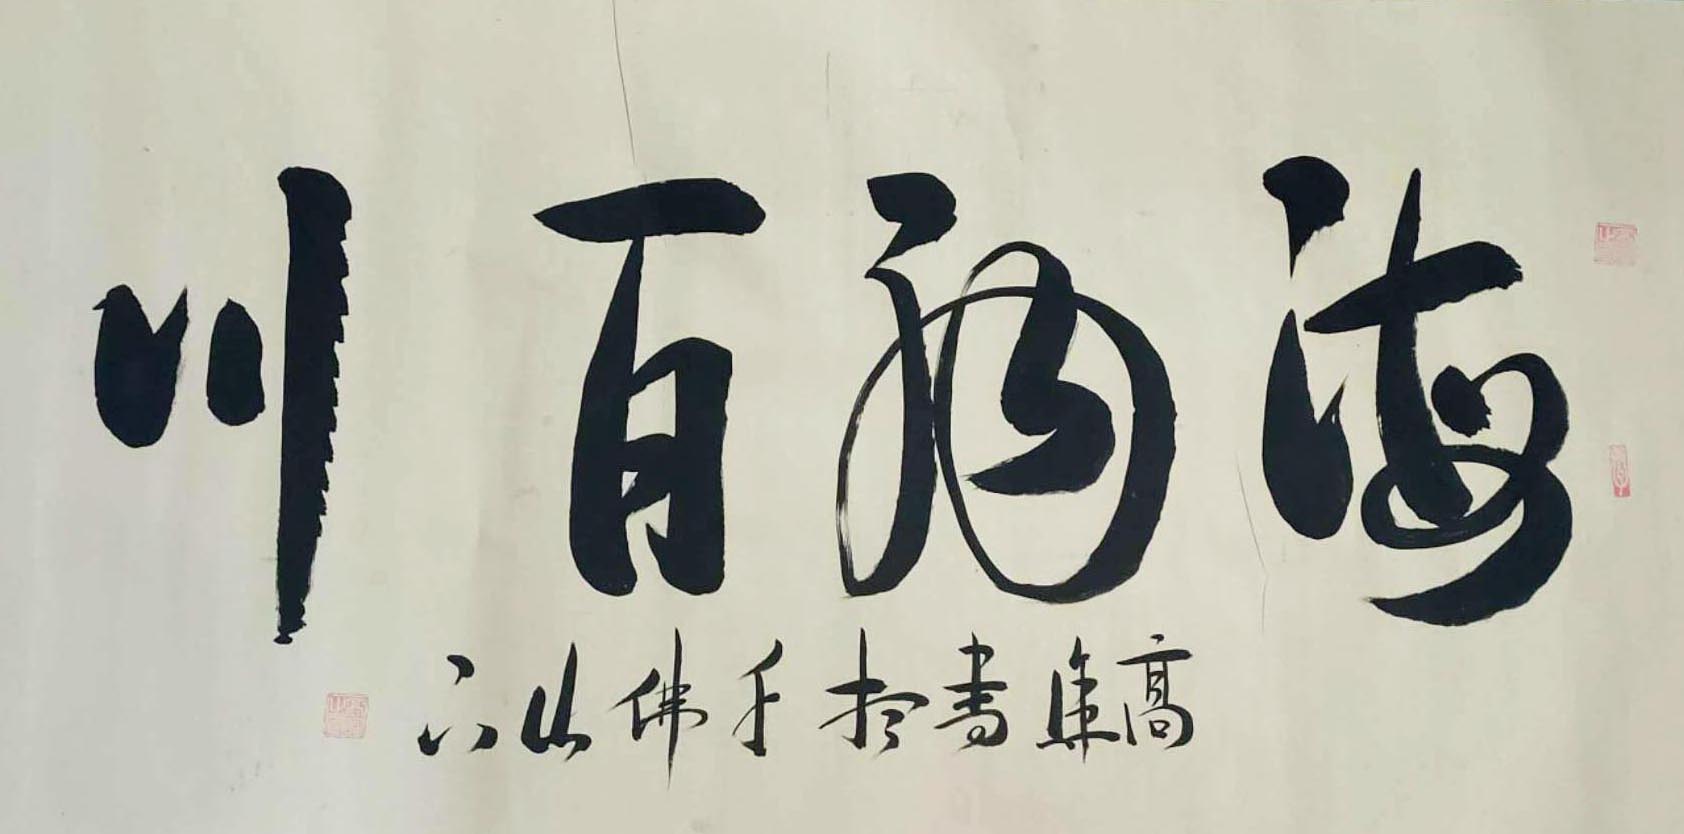 海納百川
高書於千佛山下